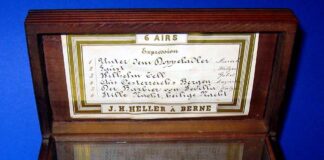 6 AIRS
Expression
1 Unter dem Doppeladler
2 Faust
3 Wilhelm Tell
4 Aus Oesterreichs Bergen
5 Der Barbier von Sevilla
6 Stille Nacht, heilige Nacht
J. H. HELLER à BERNE